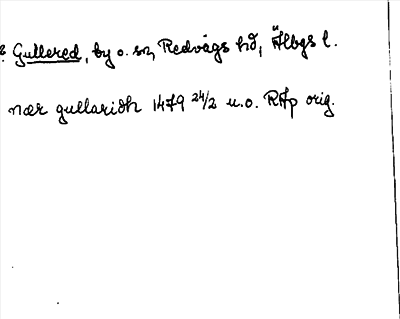 Gullered, by o. sn, Redvägs hd, Älbgs l.
nær gullaridh 1479 24/2 u.o. RAp orig.